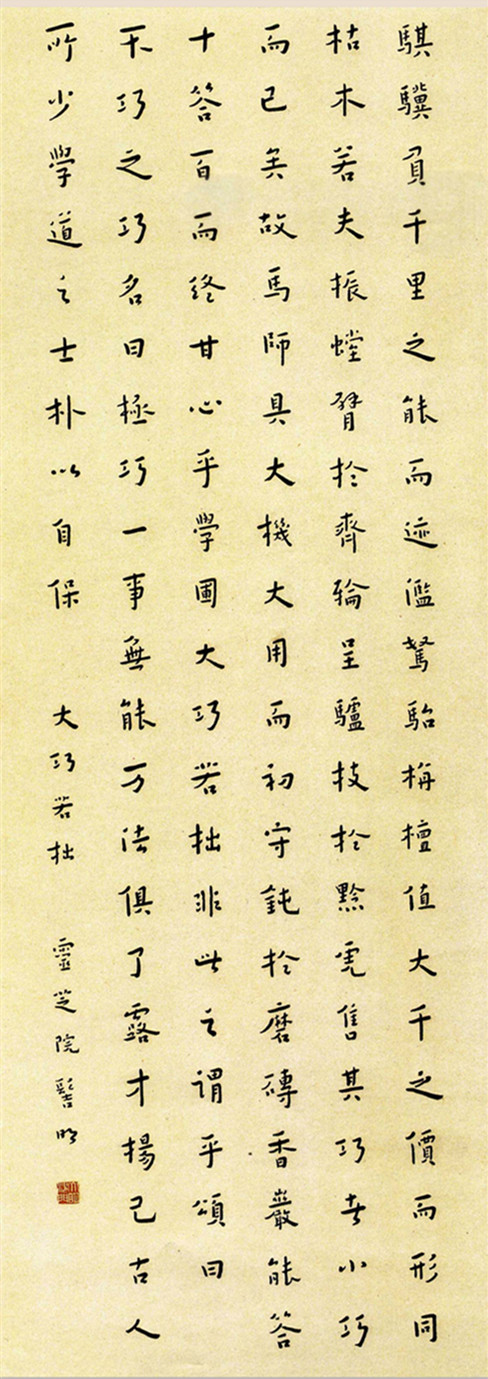 騏驥負千里之能而迹濫駑駘栴檀值大千之價而形同
枯木若夫振螳臂於齊輪呈驢技於黔虎售其巧者小巧
而已矣故馬師具大機大用而初守鈍於磨磚香嚴能答
十答百而終甘心乎學圃大巧若拙非此之謂乎頌曰
不巧之巧名曰極巧一事無能万法俱了露才揚己古人
所少學道之士朴以自保
大巧若拙
靈芝院髻明